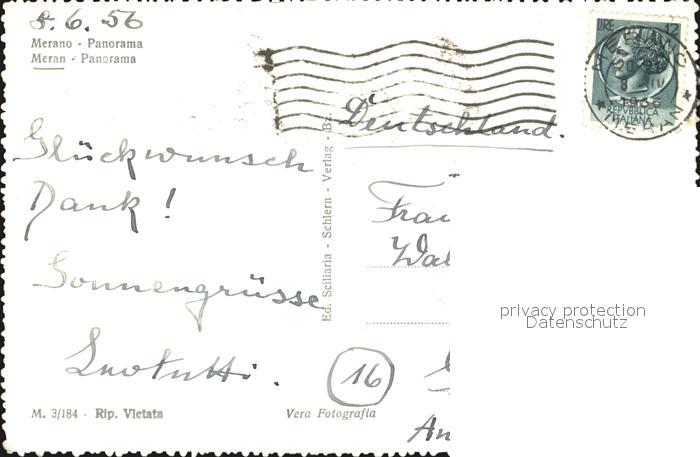 8.6.56
Merano - Panorama
Meran - Panorama
LIRE 12
MERANO
1956
REPVBBLICA
ITALIANA
MERAN
Deutschland.
Glückwunsch
Dank!
Sonnengrüsse
Ed. Sciliaria - Schlern - Verlag - Bz.
Frau
Wal
privacy protection
Datenschutz
16
M. 3/184 - Rip. Vietata
Vera Fotografia
An